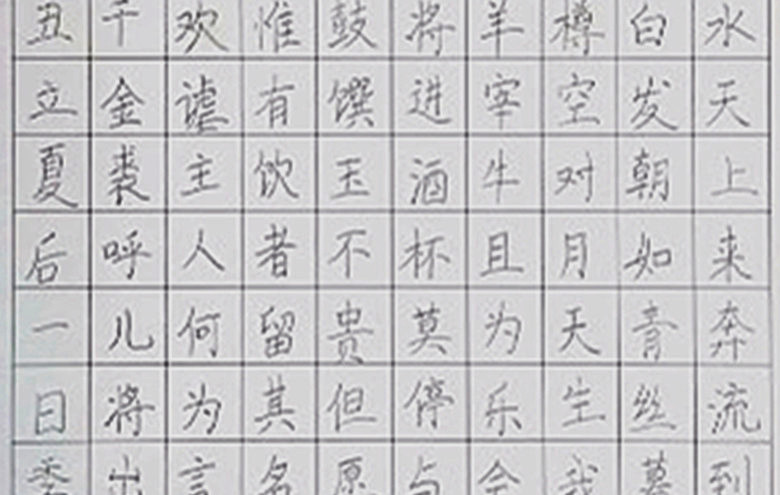 水天上来奔流到
白发朝如青丝暮
樽空对月天生我
羊宰牛且为乐会
将进酒杯莫停与
鼓馔玉不贵但愿
惟有饮者留其名
欢谑主人何为言
千金裘呼儿将出
丑立夏后一日